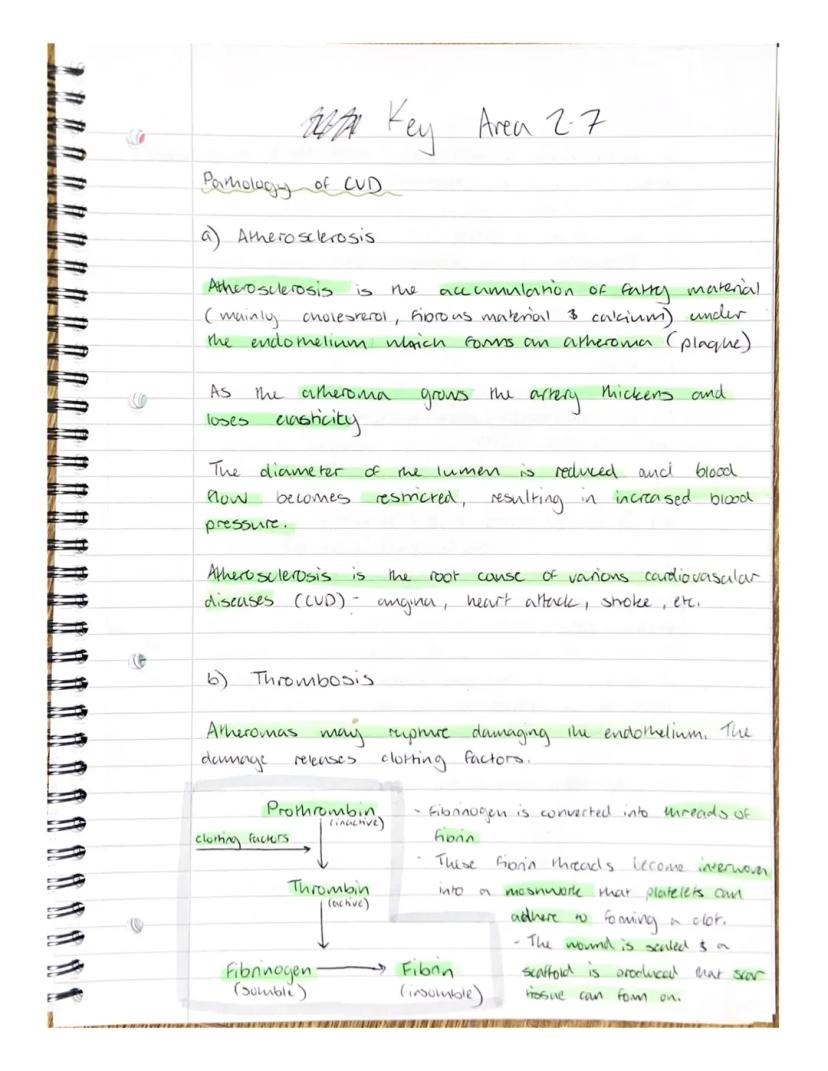 Key Area 2.7
Pathology of CVD
a) Atherosclerosis
Atherosclerosis is the accumulation of fatty material
(mainly cholesterol, fibrous material & calcium) under
the endothelium which forms an atheroma (plaque)
As the atheroma grows the artery thickens and
loses elasticity
The diameter of the lumen is reduced and blood
flow becomes restricted, resulting in increased blood
pressure.
Atherosclerosis is the root cause of various cardiovascular
diseases (CVD) - angina, heart attack, stroke, etc.
b) Thrombosis
Atheromas may rupture damaging the endothelium. The
damage releases clotting factors.
Prothrombin
(inactive)
clotting factors
Thrombin
(active)
Fibrinogen → Fibrin
(soluble) (insoluble)
- Fibrinogen is converted into threads of
fibrin
- These fibrin threads become interwoven
into a meshwork that platelets can
adhere to forming a clot.
- The wound is sealed & a
scaffold is produced that scar
tissue can form on.